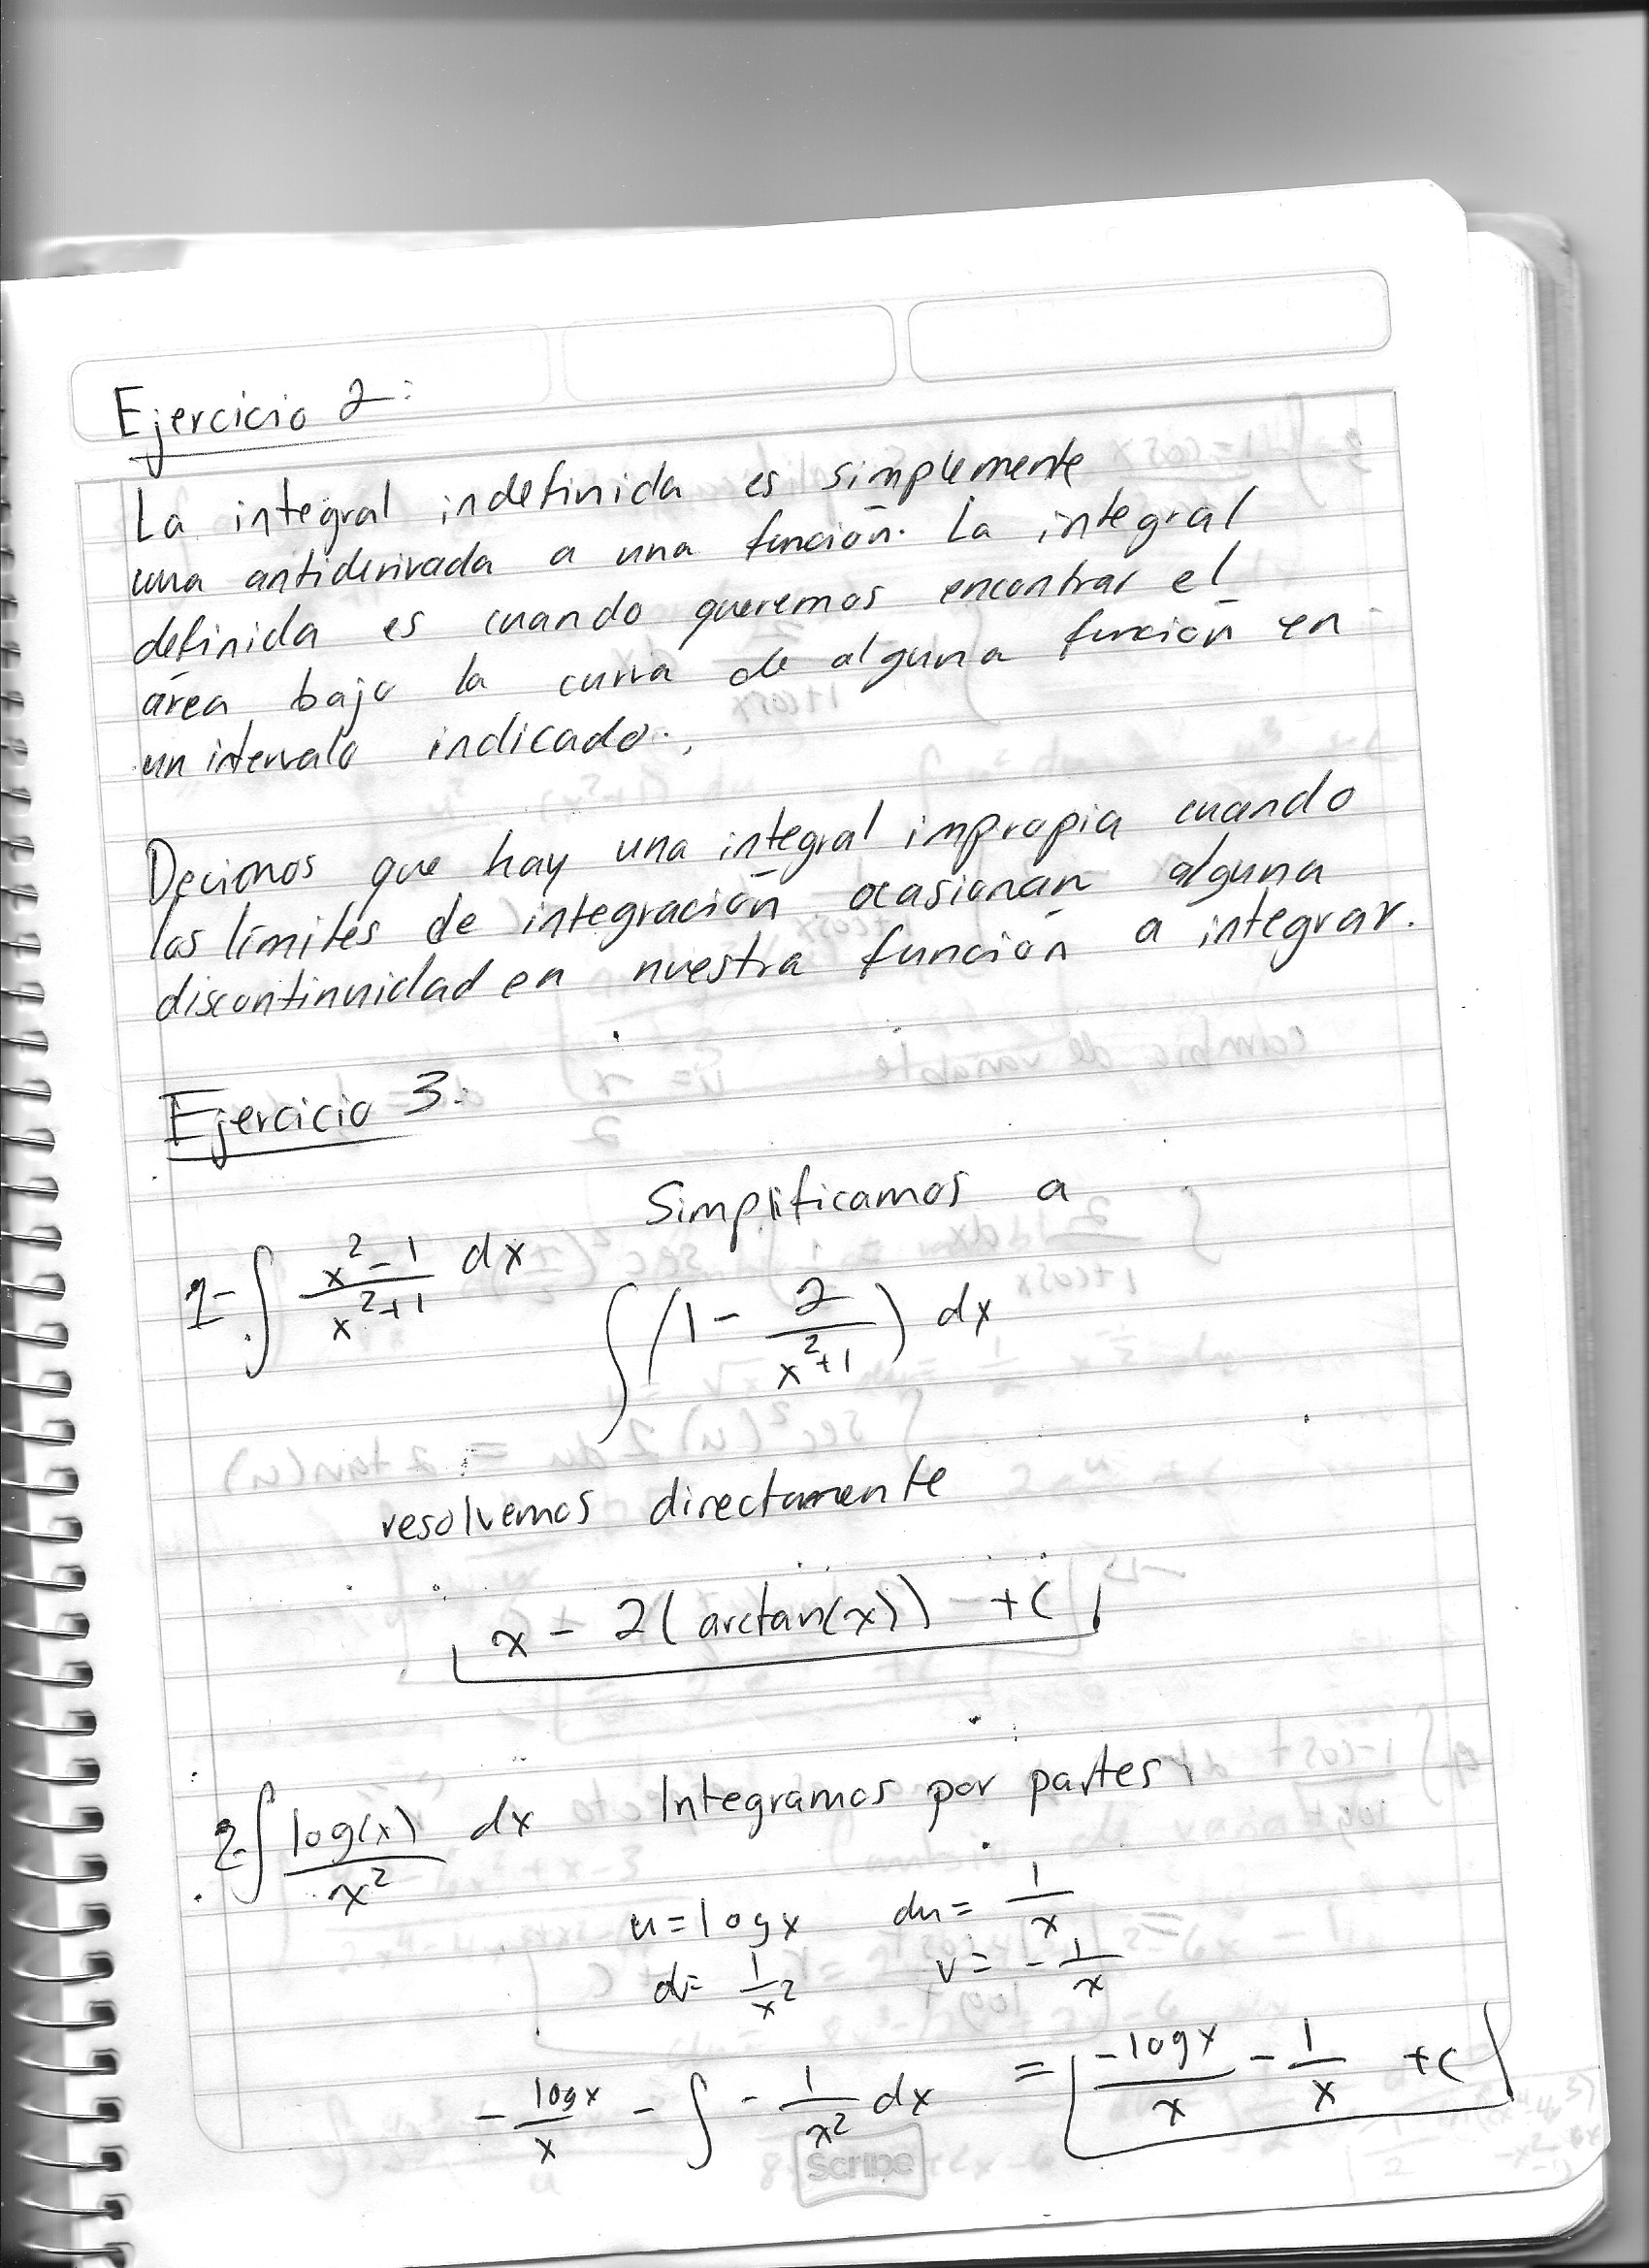 Ejercicio 2:
La integral indefinida es simplemente
una antiderivada a una función. La integral
definida es cuando queremos encontrar el
área bajo la curva de alguna función en
un intervalo indicado.
Decimos que hay una integral impropia cuando
los límites de integración ocasionan alguna
discontinuidad en nuestra función a integrar.
Ejercicio 3:
Simplificamos a
1- ∫ (x²-1)/(x²+1) dx
∫ (1 - 2/(x²+1)) dx
resolvemos directamente
x - 2(arctan(x)) + c
2- ∫ log(x)/x² dx Integramos por partes
u = log x du = 1/x
dv = 1/x² v = - 1/x
- log x/x - ∫ - 1/x² dx = -log x/x - 1/x + c
Scribe